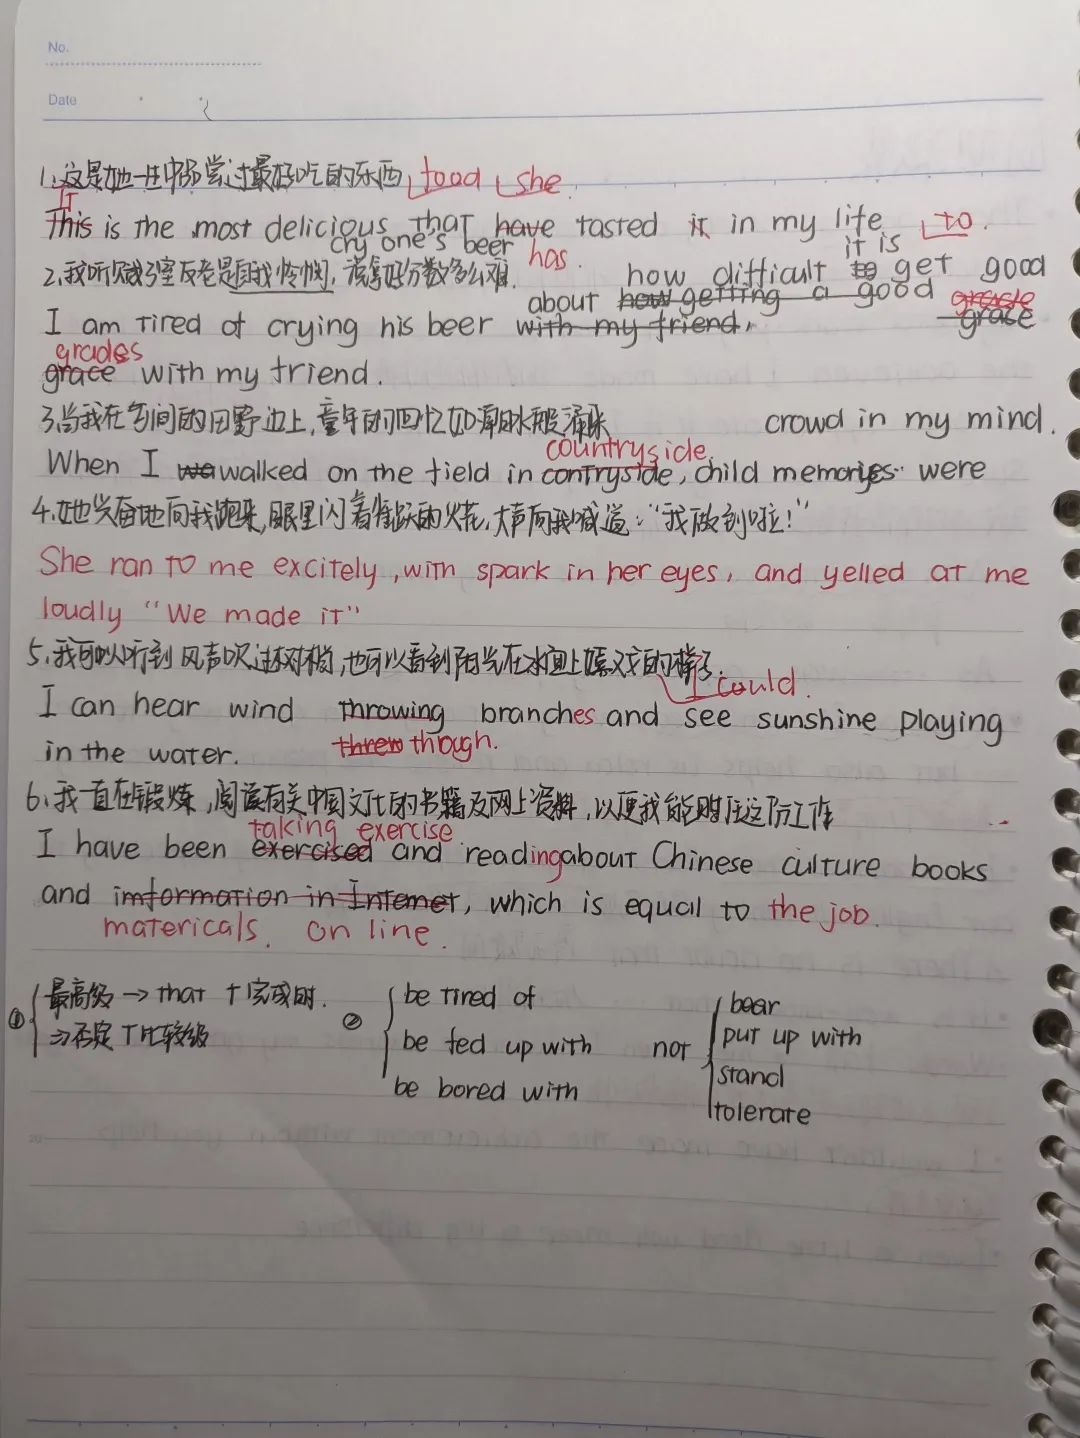 No.
Date
1.这是她一生中所尝过最好吃的东西 food she
It
This is the most delicious that have tasted it in my life to.
cry one's beer has.
2.我听腻了室友老是自我怜悯,说拿好分数多么难.
it is
how difficult to get good
about how getting a good grade
I am tired of crying his beer with my friend, grace
grades
grace with my friend.
3.当我在乡间的田野边上,童年的回忆如潮水般涌来 crowd in my mind.
countryside
When I wa walked on the field in contryside, child memoryies were
4.她兴奋地向我跑来,眼里闪着雀跃的火花,大声向我喊道:"我做到啦!"
She ran to me excitely, with spark in her eyes, and yelled at me
loudly "We made it"
5.我可以听到风声吹过树梢,也可以看到阳光在水面上嬉戏的样子.
I could.
I can hear wind throwing branches and see sunshine playing
in the water. threw though.
6.我一直在锻炼,阅读有关中国文化的书籍及网上资料,以便我能胜任这份工作
taking exercise
I have been exercised and reading about Chinese culture books
and imformation in Internet, which is equal to the job.
matericals. on line.
① 最高级→that + 完成时.
⇒否定+比较级
② be tired of
be fed up with
be bored with
not bear
put up with
stand
tolerate